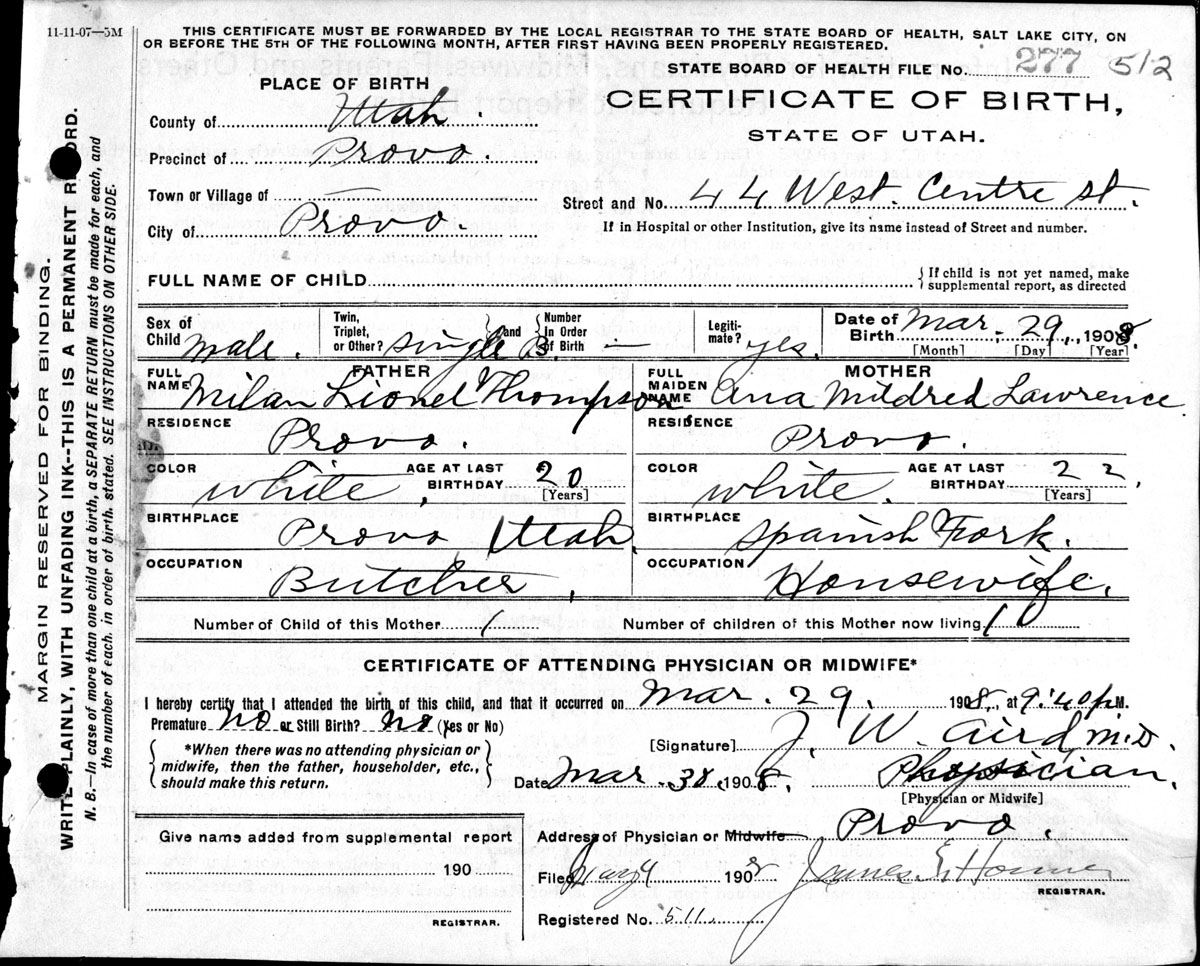 11-11-07—5M
THIS CERTIFICATE MUST BE FORWARDED BY THE LOCAL REGISTRAR TO THE STATE BOARD OF HEALTH, SALT LAKE CITY, ON
OR BEFORE THE 5TH OF THE FOLLOWING MONTH, AFTER FIRST HAVING BEEN PROPERLY REGISTERED.
STATE BOARD OF HEALTH FILE No. 277 512
PLACE OF BIRTH
CERTIFICATE OF BIRTH,
STATE OF UTAH.
County of Utah.
Precinct of Provo.
Town or Village of —
Street and No. 44 West. Centre st.
City of Provo.
If in Hospital or other Institution, give its name instead of Street and number.
FULL NAME OF CHILD
{ If child is not yet named, make
supplemental report, as directed
Sex of Child male.
Twin, Triplet, or Other? single { and } Number In Order of Birth —
Legitimate? yes.
Date of Birth Mar. 29, 1908.
[Month] [Day] [Year]
FATHER
MOTHER
FULL NAME Milan Lionel Thompson
FULL MAIDEN NAME Ana Mildred Lawrence
RESIDENCE Provo.
RESIDENCE Provo.
COLOR white.
AGE AT LAST BIRTHDAY 20
[Years]
COLOR white.
AGE AT LAST BIRTHDAY 22
[Years]
BIRTHPLACE Provo Utah
BIRTHPLACE Spanish Fork.
OCCUPATION Butcher,
OCCUPATION Housewife.
Number of Child of this Mother 1
Number of children of this Mother now living 1
CERTIFICATE OF ATTENDING PHYSICIAN OR MIDWIFE*
I hereby certify that I attended the birth of this child, and that it occurred on Mar. 29. 1908, at 9:40 p M.
Premature No or Still Birth? No (Yes or No)
{ *When there was no attending physician or
midwife, then the father, householder, etc.,
should make this return. }
[Signature] J. W. Aird, M.D.
Date Mar. 1908. Physician.
[Physician or Midwife]
Give name added from supplemental report
190
REGISTRAR.
Address of Physician or Midwife Provo.
Filed 1908 James E
REGISTRAR.
Registered No. 511
MARGIN RESERVED FOR BINDING.
WRITE PLAINLY, WITH UNFADING INK--THIS IS A PERMANENT RECORD.
N. B.—In case of more than one child at a birth, a SEPARATE RETURN must be made for each, and
the number of each, in order of birth, stated. SEE INSTRUCTIONS ON OTHER SIDE.